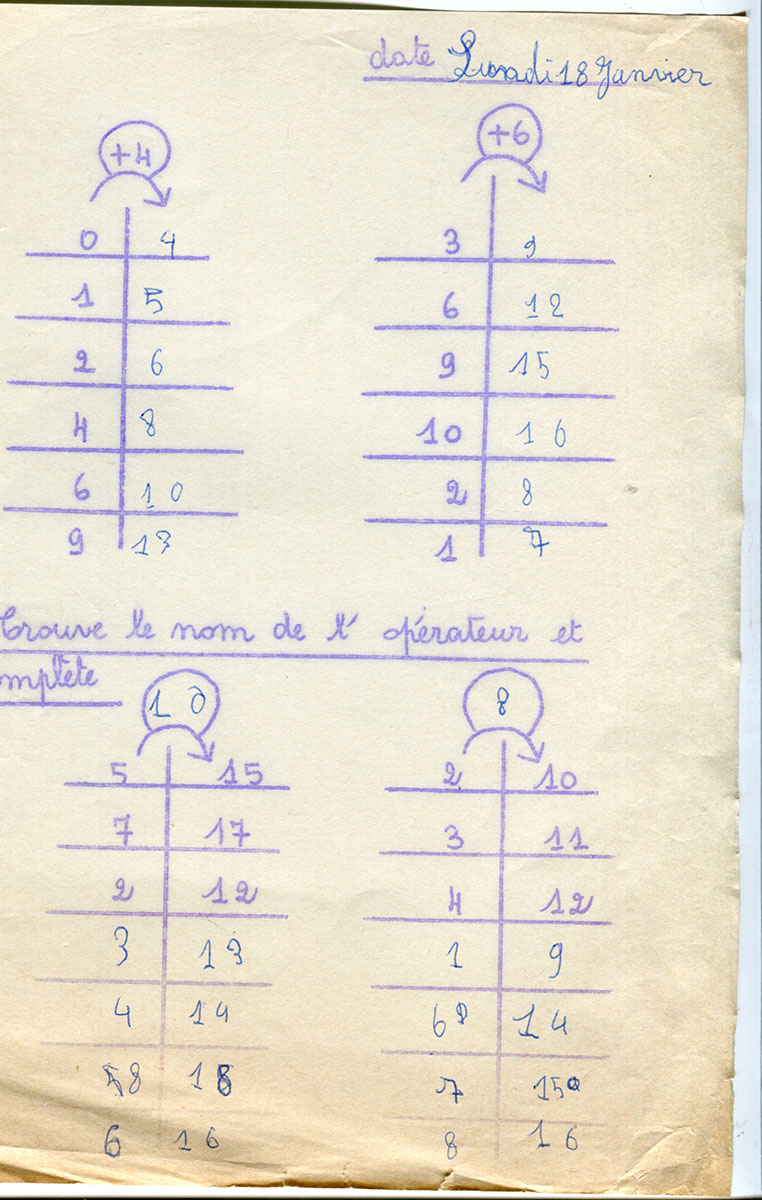 date Lundi 18 Janvier
+4
0 4
1 5
2 6
4 8
6 10
9 13
+6
3 9
6 12
9 15
10 16
2 8
1 7
Trouve le nom de l'opérateur et
mplète
10
5 15
7 17
2 12
3 13
4 14
8 18
6 16
8
2 10
3 11
4 12
1 9
6 14
7 15
8 16